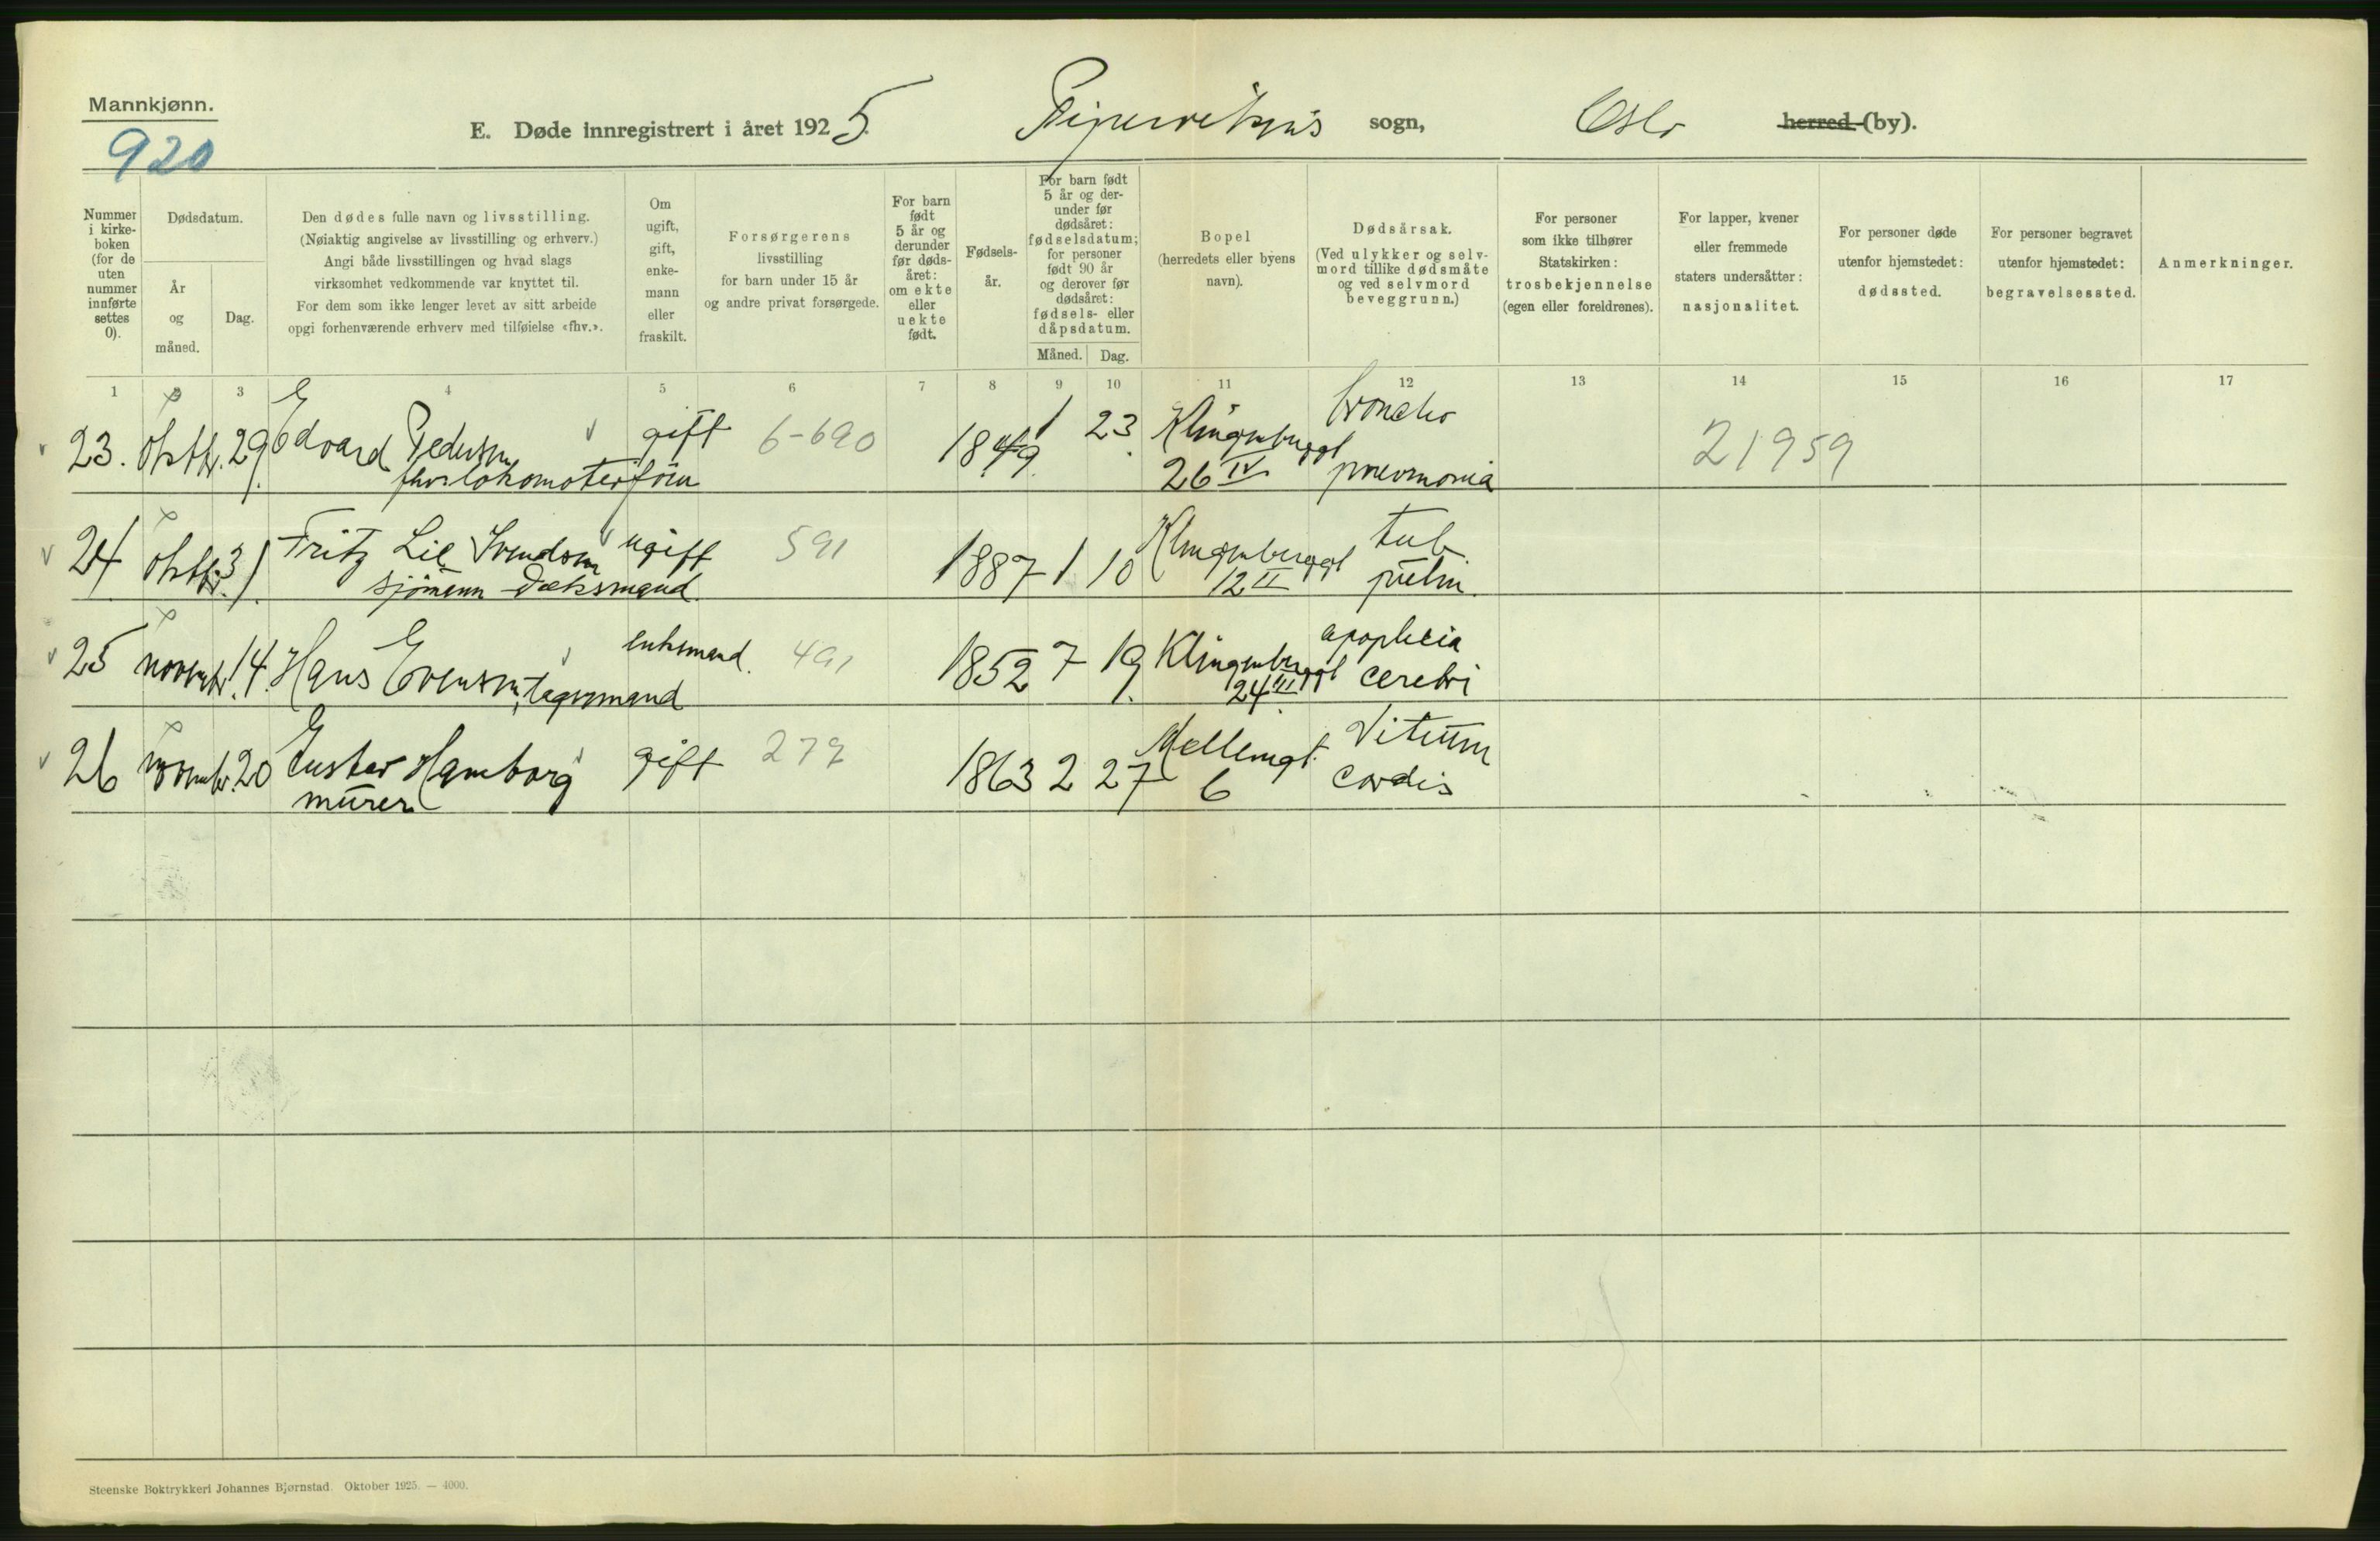 Mannkjønn.
920
E. Døde innregistrert i året 1925. Pipervikens sogn, Oslo herred (by).
Nummer i kirke-boken (for de uten nummer innførte settes 0).
Dødsdatum.
År og måned.
Dag.
Den dødes fulle navn og livsstilling.
(Nøiaktig angivelse av livsstilling og erhverv.)
Angi både livsstillingen og hvad slags
virksomhet vedkommende var knyttet til.
For dem som ikke lenger levet av sitt arbeide
opgi forhenværende erhverv med tilføielse «fhv.».
Om ugift, gift, enke-mann eller fraskilt.
Forsørgerens
livsstilling
for barn under 15 år
og andre privat forsørgede.
For barn født 5 år og derunder før døds-året: om ekte eller uekte født.
Fødsels-år.
For barn født 5 år og der-under før dødsåret: fødselsdatum; for personer født 90 år og derover før dødsåret: fødsels- eller dåpsdatum.
Måned. Dag.
Bopel
(herredets eller byens
navn).
Dødsårsak.
(Ved ulykker og selv-
mord tillike dødsmåte
og ved selvmord
beveggrunn.)
For personer
som ikke tilhører
Statskirken:
trosbekjennelse
(egen eller foreldrenes).
For lapper, kvener
eller fremmede
staters undersåtter:
nasjonalitet.
For personer døde
utenfor hjemstedet:
dødssted.
For personer begravet
utenfor hjemstedet:
begravelsessted.
Anmerkninger.
1 2 3 4 5 6 7 8 9 10 11 12 13 14 15 16 17
23. oktbr. 29. Edvard Pedersen gift 6-690 1849. 1 23. Klingenberggt broncho 21959
fhv. lokomotivfører 26 IV pneumonia
24 oktbr. 31. Fritz Lie Svendsen ugift 591 1887 1 10 Klingenberggt tub.
sjömann Dæksmand. 12 II pulm.
25 novembr. 14. Hans Evensen, lagermand enkemand. 491 1852 7 19. Klingenberggt apoplexia
24 III cerebri
26 novembr. 20 Gustav Hamborg gift 279 1863 2 27 Mellemgt. Vitium
murer 6 cordis
Steenske Boktrykkeri Johannes Bjørnstad. Oktober 1925. — 4000.